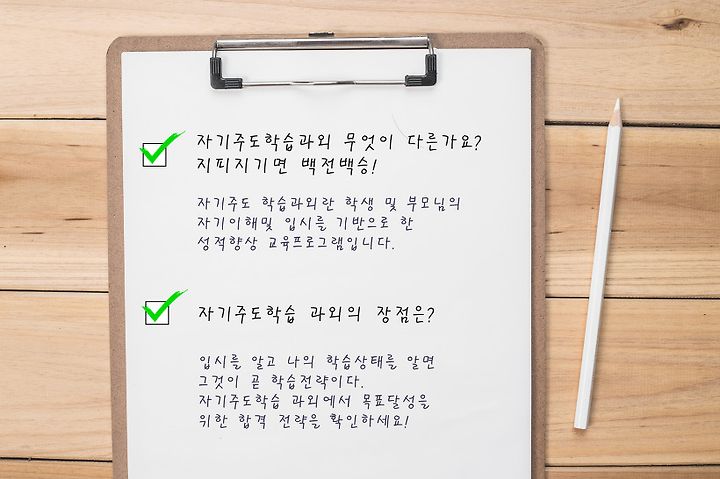 자기주도학습과외 무엇이 다른가요?
지피지기면 백전백승!
자기주도 학습과외란 학생 및 부모님의
자기이해및 입시를 기반으로 한
성적향상 교육프로그램입니다.
자기주도학습 과외의 장점은?
입시를 알고 나의 학습상태를 알면
그것이 곧 학습전략이다.
자기주도학습 과외에서 목표달성을
위한 합격 전략을 확인하세요!